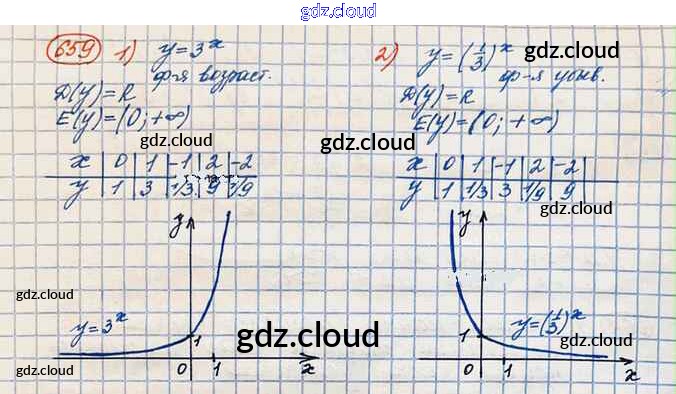 gdz.cloud
659 1) y = 3^x
ф-я возраст.
D(y) = R
E(y) = (0; +∞)
gdz.cloud
x | 0 | 1 | -1 | 2 | -2
y | 1 | 3 | 1/3 | 9 | 1/9
gdz.cloud
y
gdz.cloud
y = 3^x
1
gdz.cloud
0 1 x
gdz.cloud
2) y = (1/3)^x
gdz.cloud
ф-я убыв.
D(y) = R
gdz.cloud
E(y) = (0; +∞)
gdz.cloud
x | 0 | 1 | -1 | 2 | -2
y | 1 | 1/3 | 3 | 1/9 | 9
gdz.cloud
y
gdz.cloud
1
y = (1/3)^x
gdz.cloud
0 1 x
gdz.cloud